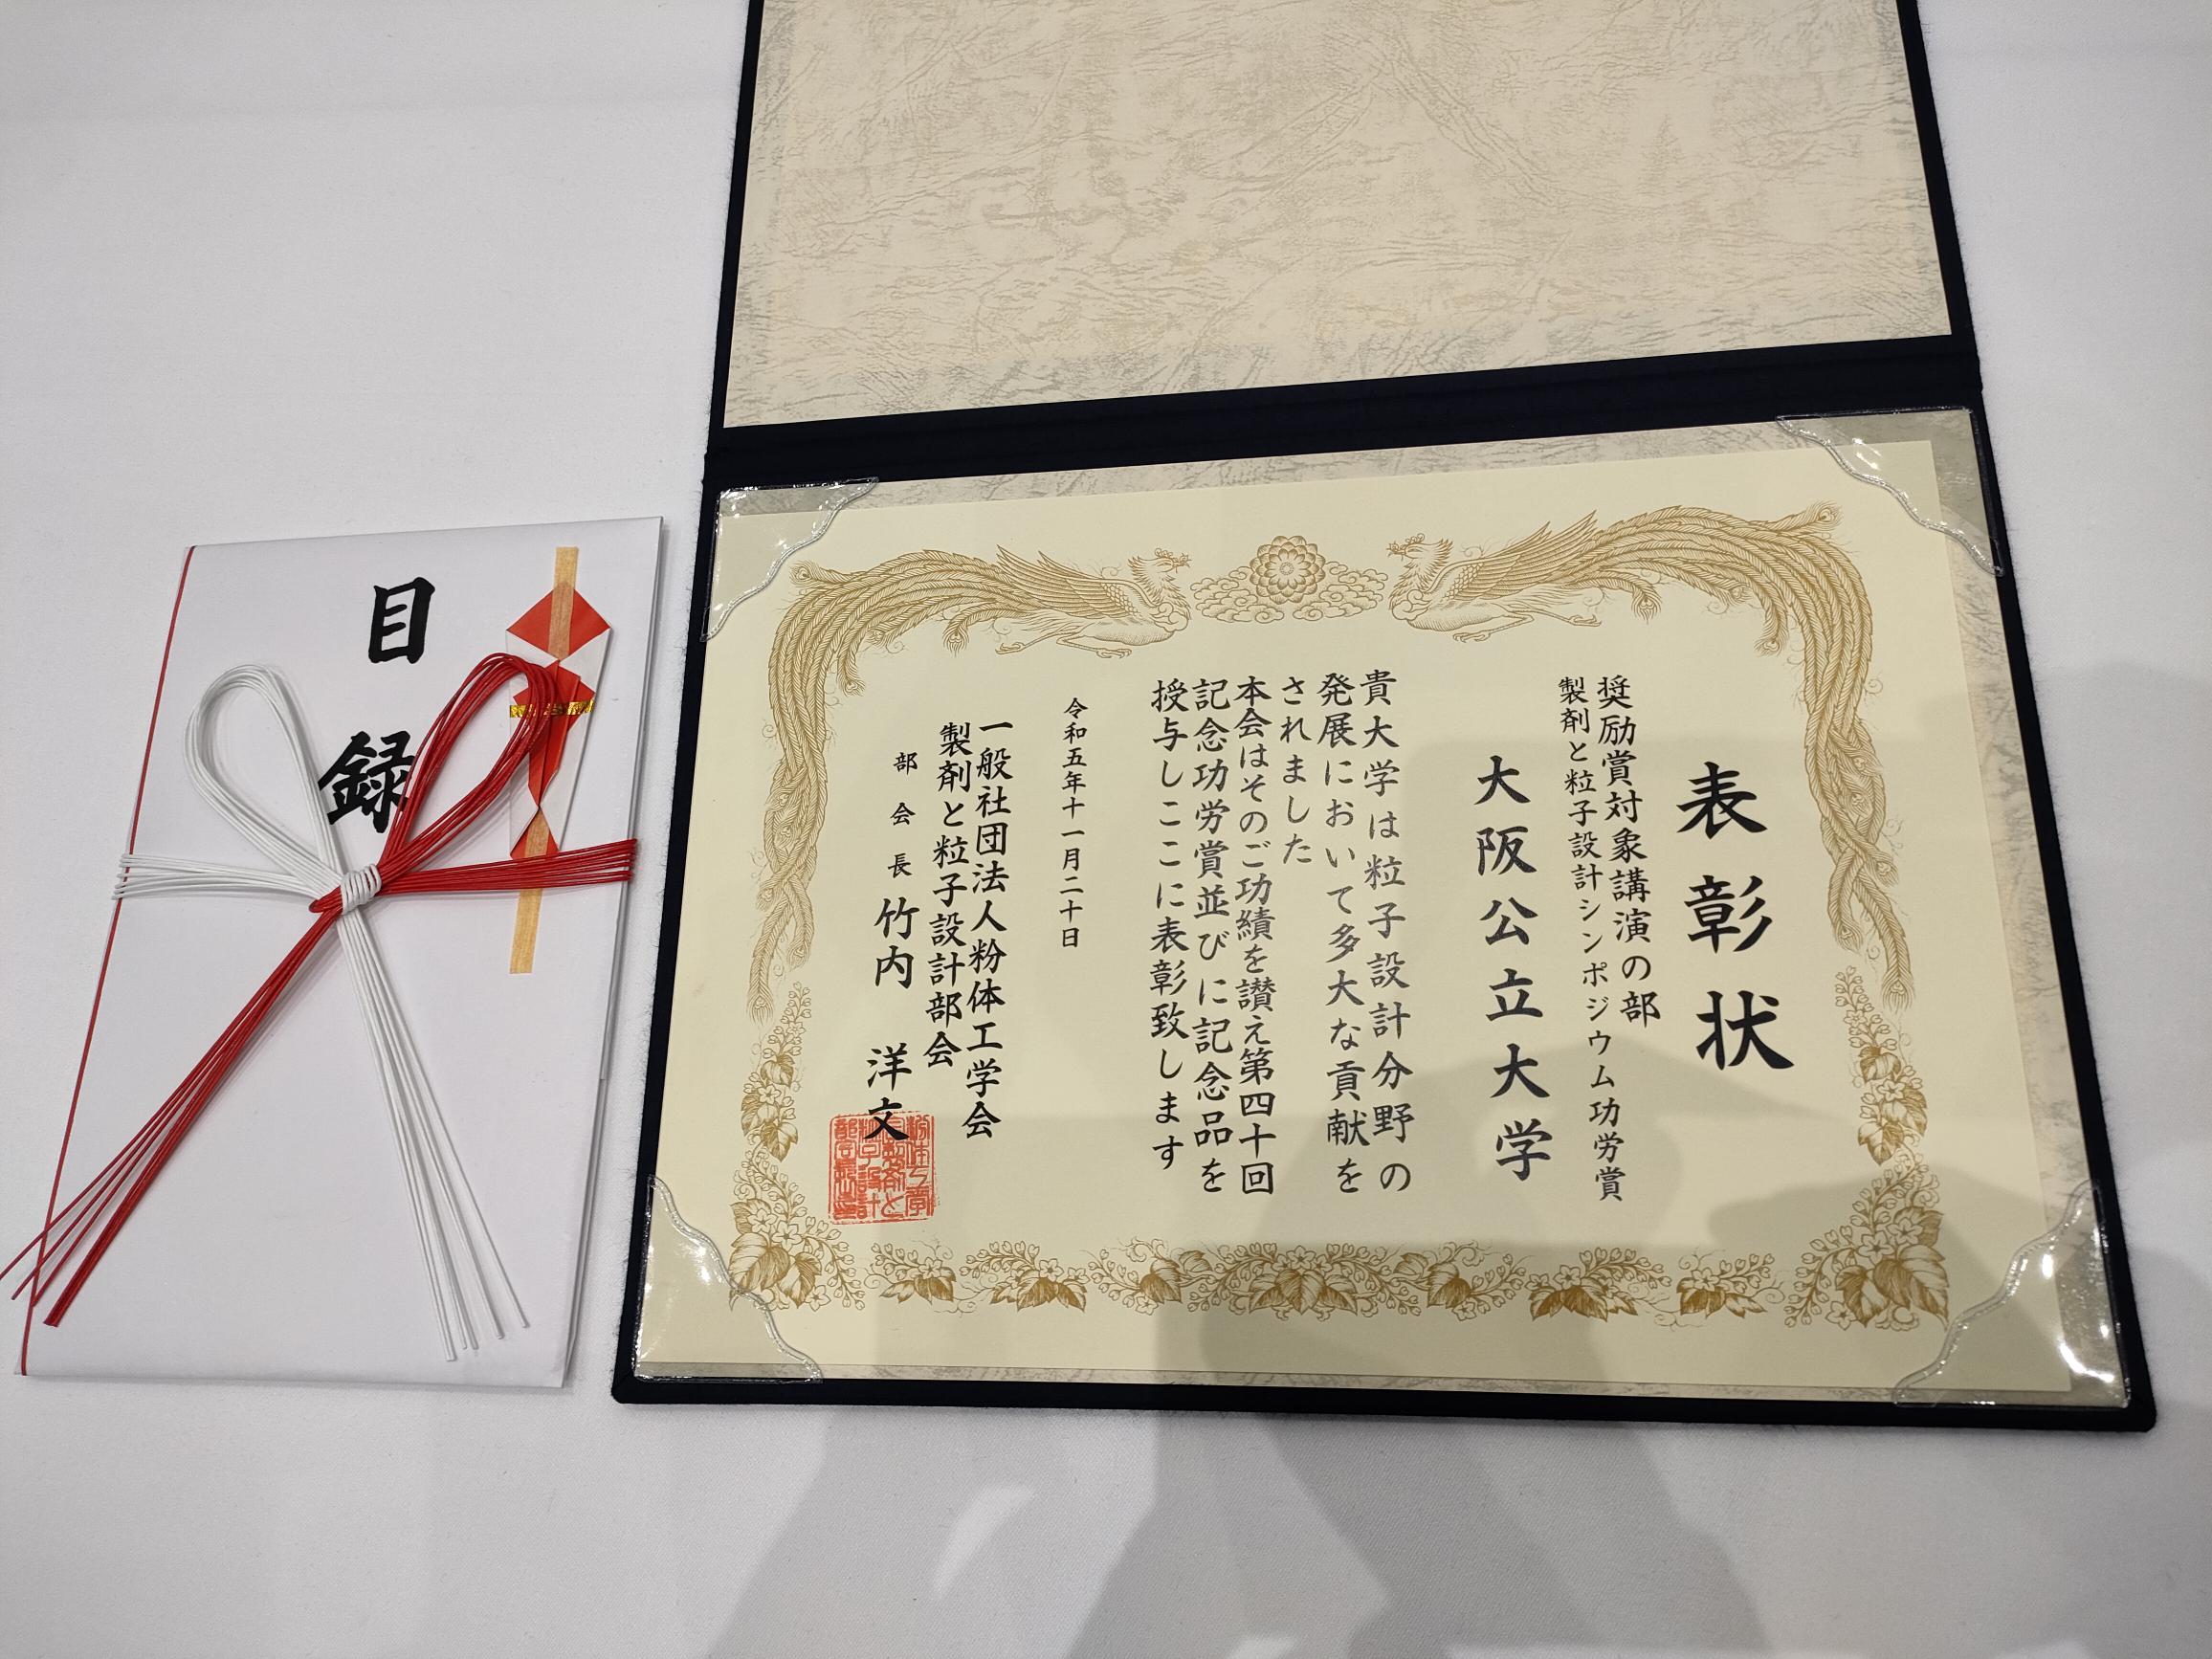 表彰状
奨励賞対象講演の部
製剤と粒子設計シンポジウム功労賞
大阪公立大学
貴大学は粒子設計分野の
発展において多大な貢献を
されました
本会はそのご功績を讃え第四十回
記念功労賞並びに記念品を
授与しここに表彰致します
令和五年十一月二十日
一般社団法人粉体工学会
製剤と粒子設計部会
部会長 竹内 洋文
目録